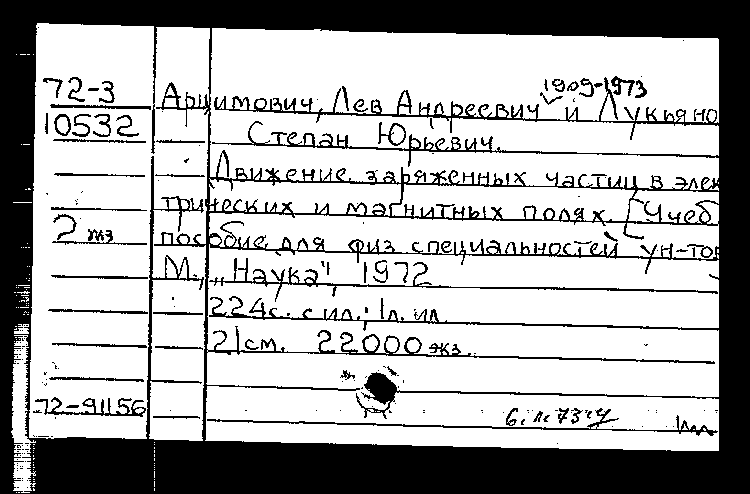 1909-1973
72-3 Арцимович, Лев Андреевич и Лукьяно
10532 Степан Юрьевич.
Движение заряженных частиц в элек
трических и магнитных полях. [Учеб.
2 экз пособие для физ специальностей ун-тов
М., „Наука", 1972
224с. с ил.; 1л. ил.
21см. 22000 экз.
72-91156